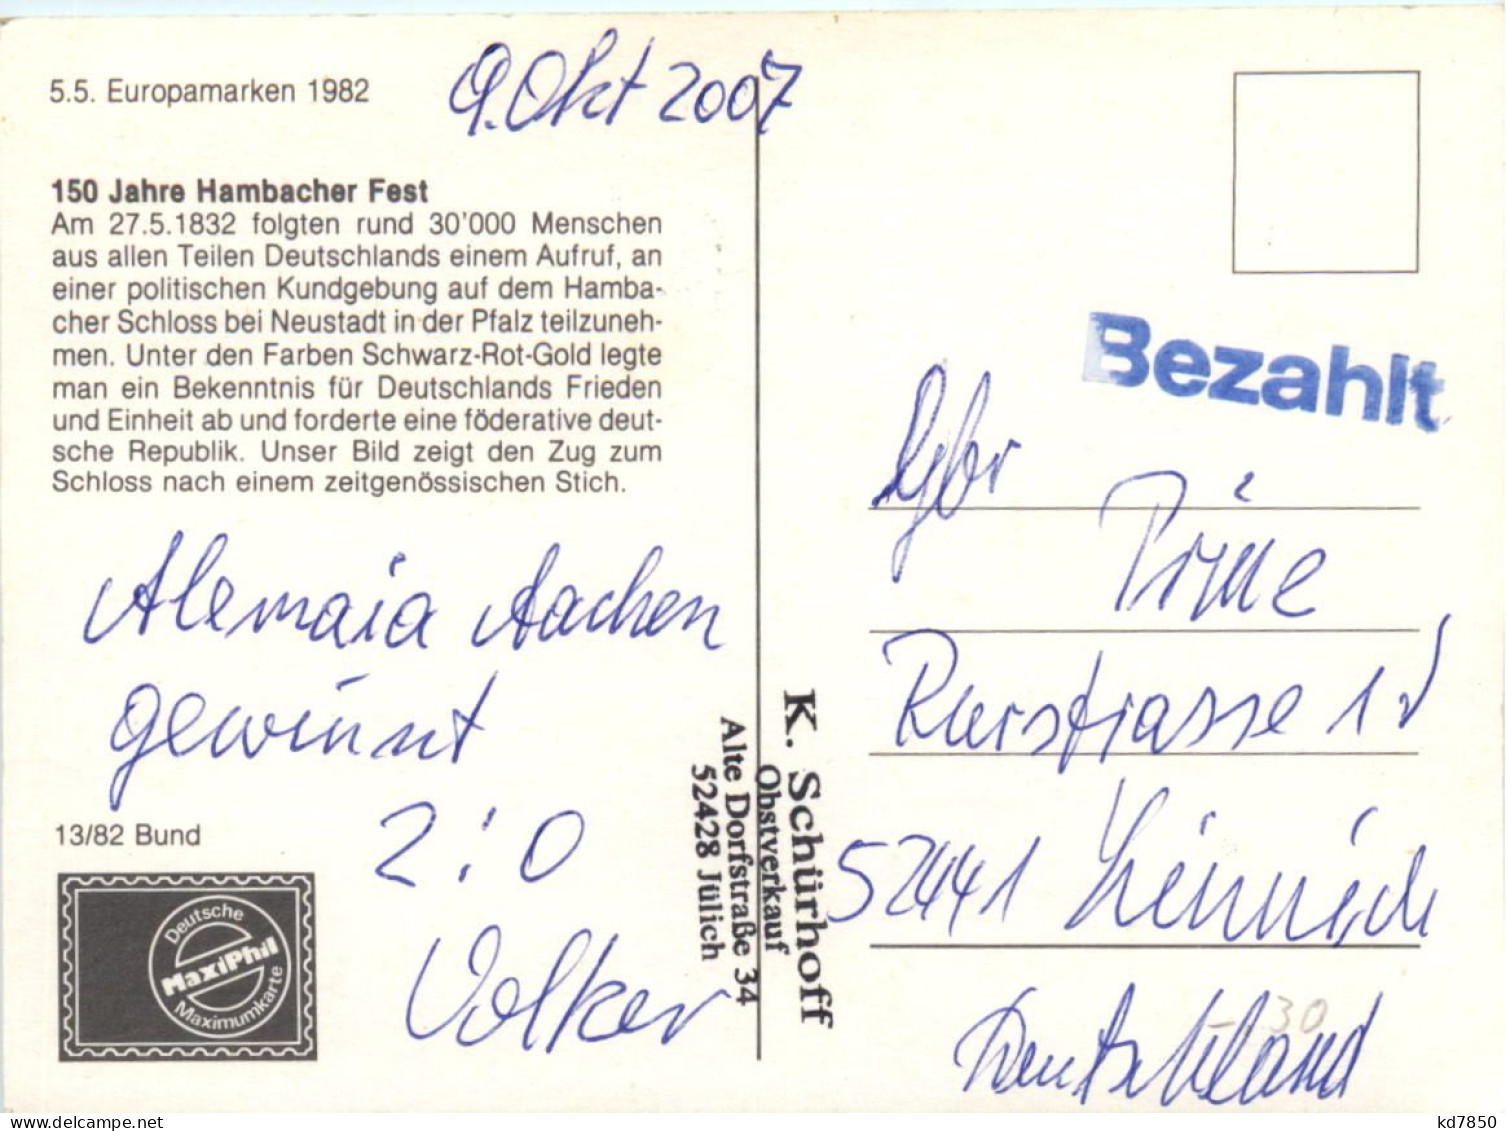 5.5. Europamarken 1982
9. Okt 2007
150 Jahre Hambacher Fest
Am 27.5.1832 folgten rund 30'000 Menschen
aus allen Teilen Deutschlands einem Aufruf, an
einer politischen Kundgebung auf dem Hamba-
cher Schloss bei Neustadt in der Pfalz teilzuneh-
men. Unter den Farben Schwarz-Rot-Gold legte
man ein Bekenntnis für Deutschlands Frieden
und Einheit ab und forderte eine föderative deut-
sche Republik. Unser Bild zeigt den Zug zum
Schloss nach einem zeitgenössischen Stich.
Alemaia Aachen
gewinnt
2:0
Volker
13/82 Bund
Deutsche
MaxiPhil
Maximumkarte
K. Schürhoff
Obstverkauf
Alte Dorfstraße 34
52428 Jülich
Bezahlt
Gbr
Rurstrasse 1
52441 Linnich
Deutschland
30
www.delcampe.net
kd7850